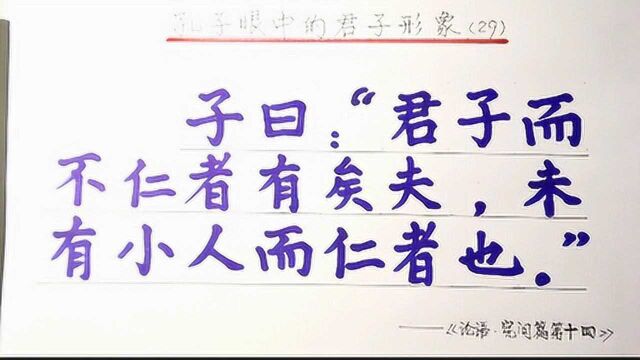 孔子眼中的君子形象(29)
子曰:“君子而
不仁者有矣夫,未
有小人而仁者也.”
——《论语·宪问篇第十四》